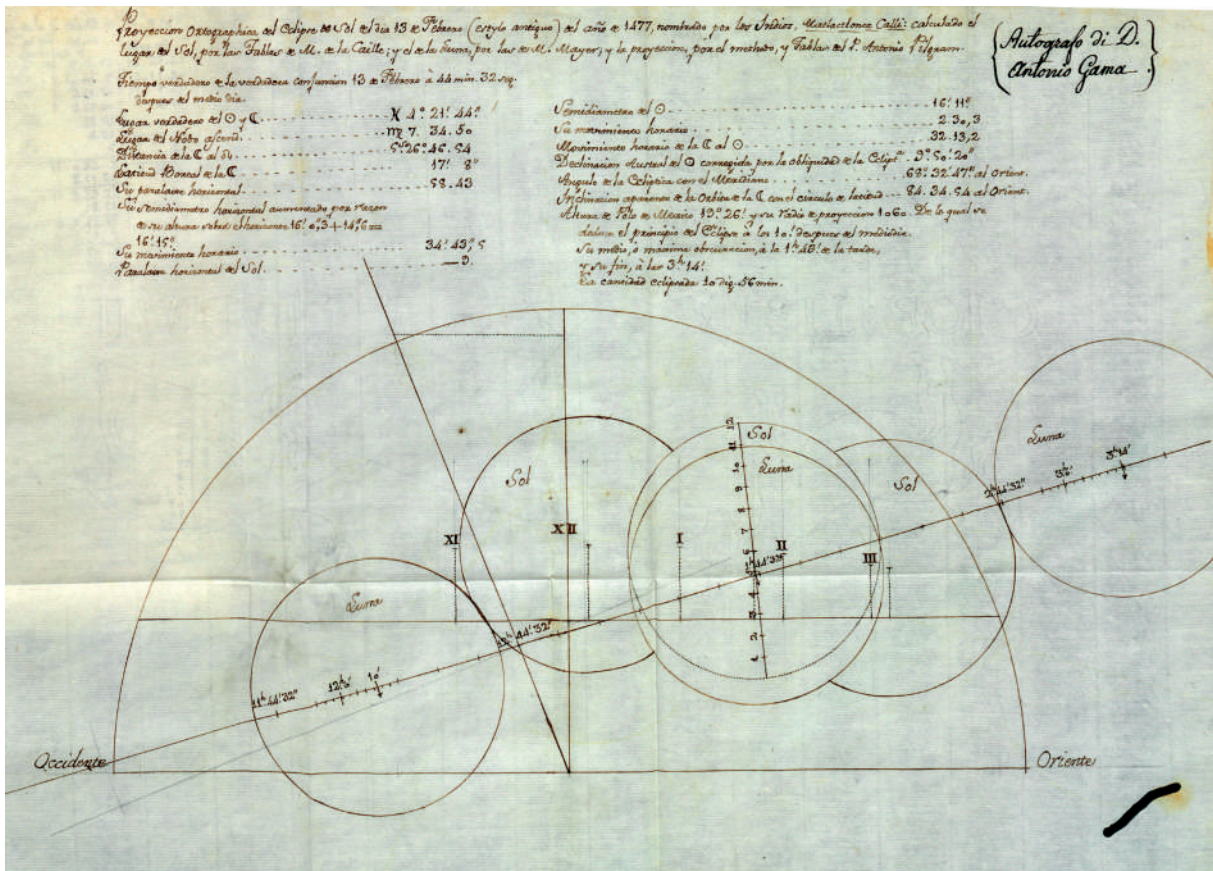 Proyeccion Ortographica del Eclipse de Sol del dia 13 de Febrero (estylo antiguo) del año de 1477, nombrado por los Indios, Matlactlonce Calli: calculado el
lugar del Sol, por las Tablas de M. de la Caille; y el de la Luna, por las de M. Mayer; y la proyeccion, por el methodo, y Tablas del P. Antonio Pilgram.
{Autografo di D.
Antonio Gama.}
Tiempo verdadero de la verdadera conjuncion 13 de Febrero à 44 min. 32 seg.
despues del medio dia.
Lugar verdadero del ☉ y ☾ ♓ 4° 21' 44"
Lugar del Nodo ascend. ♍ 7. 34. 50
Distancia de la ☾ al ☊ 5ˢ 26° 46. 54
Latitud Boreal de la ☾ 17' 8"
Su paralaxe horizontal 58. 43
Su semidiametro horizontal aumentado por razon
de su altura sobre el horizonte 16' 0",3 + 14",6 =
16' 15"
Su movimiento horario 34' 43",5
Paralaxe horizontal del Sol — 9.
Semidiametro del ☉ 16' 11"
Su movimiento horario 2. 30,3
Movimiento horario de la ☾ al ☉ 32. 13,2
Declinacion Austral del ☉ corregida por la obliquidad de la Eclipt. 9° 50' 20"
Angulo de la Ecliptica con el Meridiano 68° 32' 47" al Orient.
Inclinacion aparente de la Orbita de la ☾ con el circulo de latitud 84. 34. 54 al Orient.
Altura de Polo de Mexico 19° 26' y su radio de proyeccion 1060. De lo qual se
deduce el principio del Eclipse à los 10' despues del mediodia.
Su medio, ò maxima obscuracion, à la 1ʰ 48' de la tarde,
y su fin, à las 3ʰ 14'
La cantidad eclipsada 10 dig. 56 min.
Sol
Luna
Sol
Luna
Sol
Luna
XI
XII
I
II
III
12
11
10
9
8
7
6
5
4
3
2
1
11ʰ 44' 32"
12ʰ
10'
12ʰ 44' 32"
1ʰ 44' 32"
2ʰ 44' 32"
3ʰ
3ʰ 14'
Occidente
Oriente